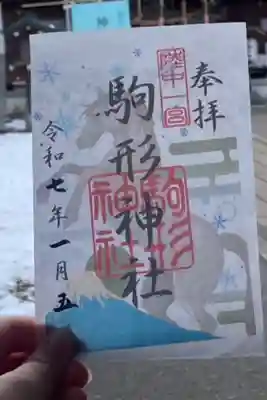 奉拝
陸中一宮
駒形神社
駒形神社
令和七年一月五